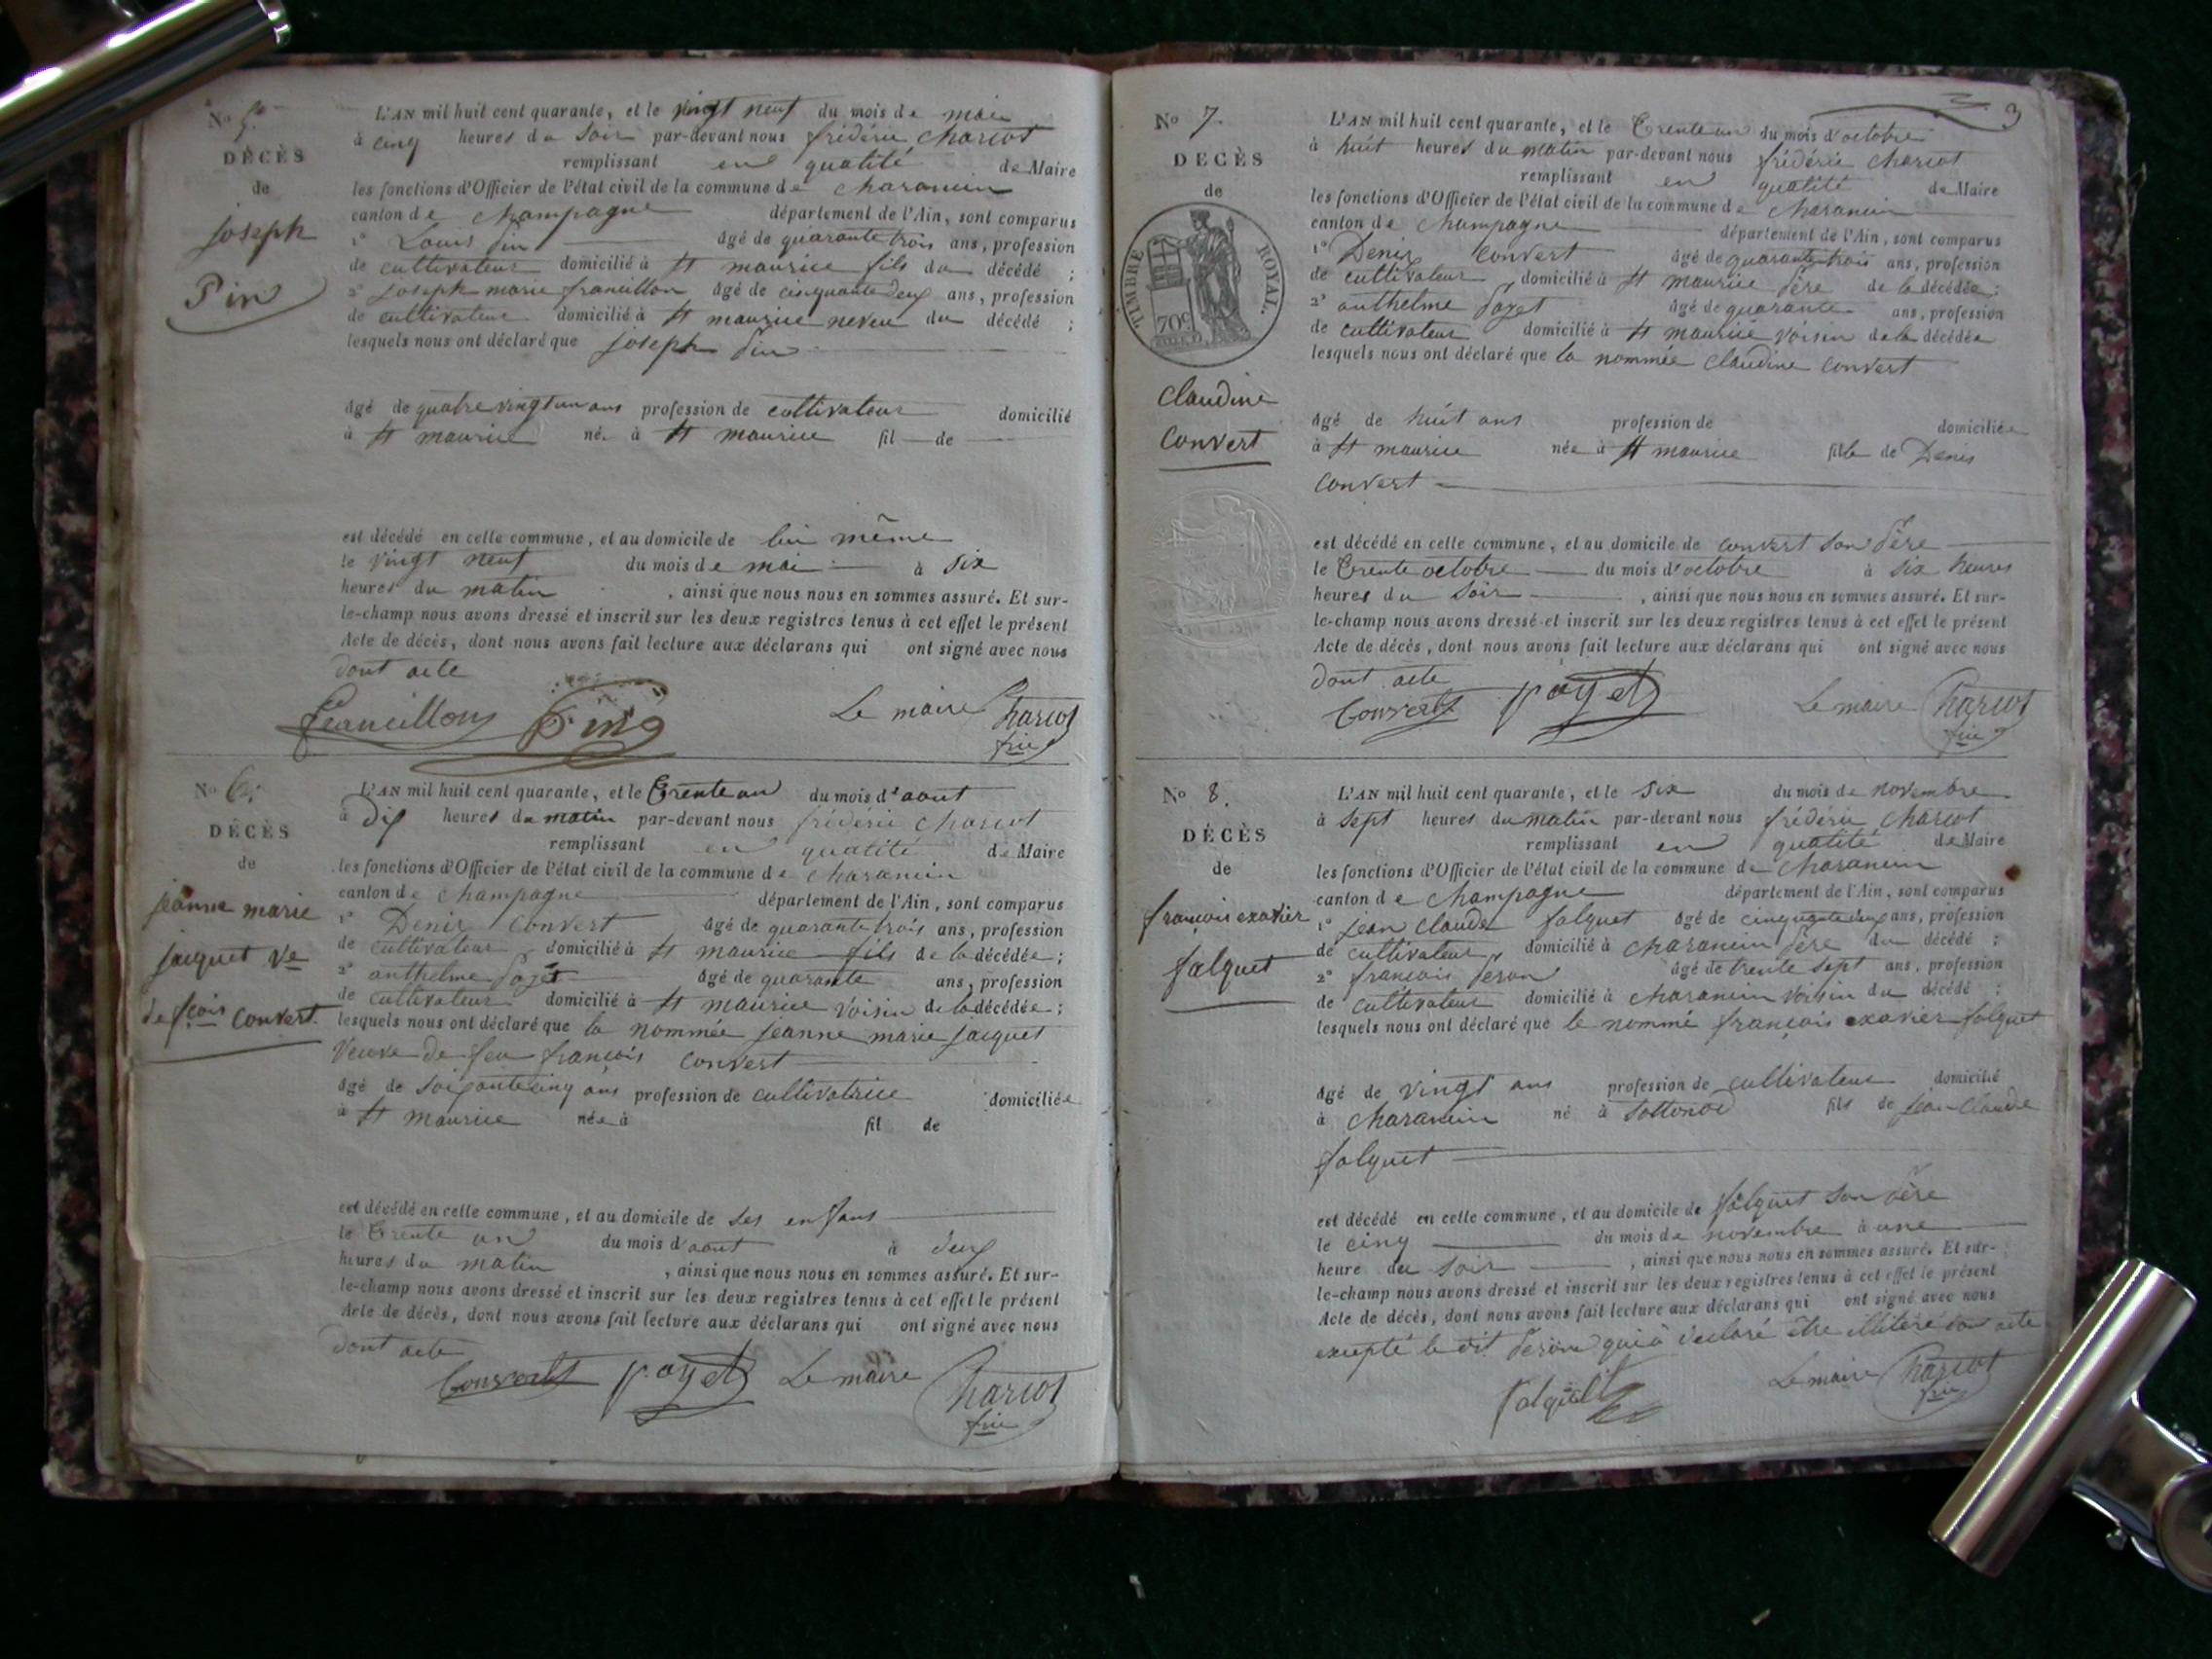 No 5.
DÉCÈS
de
joseph
Pin
L'AN mil huit cent quarante, et le vingt neuf du mois de mai
à cinq heures du soir par-devant nous frédéric Charcot
remplissant en qualité de Maire
les fonctions d'Officier de l'état civil de la commune de charancin
canton de champagne département de l'Ain, sont comparus
1° Louis pin âgé de quarante trois ans, profession
de cultivateur domicilié à st maurice fils du décédé ;
2° joseph marie francillon âgé de cinquante deux ans, profession
de cultivateur domicilié à st maurice neveu du décédé ;
lesquels nous ont déclaré que joseph pin
âgé de quatre vingt un ans profession de cultivateur domicilié
à st maurice né à st maurice fil de
est décédé en cette commune, et au domicile de lui même
le vingt neuf du mois de mai à six
heures du matin , ainsi que nous nous en sommes assuré. Et sur-
le-champ nous avons dressé et inscrit sur les deux registres tenus à cet effet le présent
Acte de décès, dont nous avons fait lecture aux déclarans qui ont signé avec nous
dont acte
francillon Pin Le maire Charcot
fric
No 6.
DÉCÈS
de
jeanne marie
jacquet ve
de fçois convert
L'AN mil huit cent quarante, et le trente un du mois d'aout
à dix heures du matin par-devant nous frédéric charcot
remplissant en qualité de Maire
les fonctions d'Officier de l'état civil de la commune de charancin
canton de champagne département de l'Ain, sont comparus
1° Denis convert âgé de quarante trois ans, profession
de cultivateur domicilié à st maurice fils de la décédée ;
2° anthelme payet âgé de quarante ans, profession
de cultivateur domicilié à st maurice voisin de la décédée ;
lesquels nous ont déclaré que la nommée jeanne marie jacquet
veuve de feu françois convert
âgé de soixante cinq ans profession de cultivatrice domiciliée
à st maurice née à fil de
est décédé en cette commune, et au domicile de ses enfans
le trente un du mois d'aout à deux
heures du matin , ainsi que nous nous en sommes assuré. Et sur-
le-champ nous avons dressé et inscrit sur les deux registres tenus à cet effet le présent
Acte de décès, dont nous avons fait lecture aux déclarans qui ont signé avec nous
dont acte
Convert payet Le maire Charcot
fric
3
No 7.
DÉCÈS
de
TIMBRE ROYAL.
70c
claudine
convert
L'AN mil huit cent quarante, et le trente un du mois d'octobre
à huit heures du matin par-devant nous frédéric charcot
remplissant en qualité de Maire
les fonctions d'Officier de l'état civil de la commune de charancin
canton de champagne département de l'Ain, sont comparus
1° Denis convert âgé de quarante trois ans, profession
de cultivateur domicilié à st maurice père de la décédée ;
2° anthelme payet âgé de quarante ans, profession
de cultivateur domicilié à st maurice voisin de la décédée
lesquels nous ont déclaré que la nommée claudine convert
âgé de huit ans profession de domiciliée
à st maurice née à st maurice fille de Denis
convert
est décédé en cette commune, et au domicile de convert son père
le trente octobre du mois d'octobre à six heures
heures du soir , ainsi que nous nous en sommes assuré. Et sur-
le-champ nous avons dressé et inscrit sur les deux registres tenus à cet effet le présent
Acte de décès, dont nous avons fait lecture aux déclarans qui ont signé avec nous
dont acte
Convert payet Le maire Charcot
fric
No 8.
DÉCÈS
de
françois exavier
falquet
L'AN mil huit cent quarante, et le six du mois de novembre
à sept heures du matin par-devant nous frédéric charcot
remplissant en qualité de Maire
les fonctions d'Officier de l'état civil de la commune de charancin
canton de champagne département de l'Ain, sont comparus
1° jean claude falquet âgé de cinquante deux ans, profession
de cultivateur domicilié à charancin père du décédé ;
2° françois peron âgé de trente sept ans, profession
de cultivateur domicilié à charancin voisin du décédé ;
lesquels nous ont déclaré que le nommé françois exavier falquet
âgé de vingt ans profession de cultivateur domicilié
à charancin né à sottonod fils de jean claude
falquet
est décédé en cette commune, et au domicile de falquet son père
le cinq du mois de novembre à une
heure du soir , ainsi que nous nous en sommes assuré. Et sur-
le-champ nous avons dressé et inscrit sur les deux registres tenus à cet effet le présent
Acte de décès, dont nous avons fait lecture aux déclarans qui ont signé avec nous
excepté le dit peron qui à déclaré être illitéré dont acte
falquet Le maire Charcot
fric